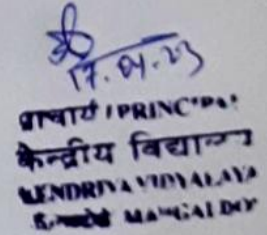 17.04.23
प्राचार्य / PRINCIPAL
केन्द्रीय विद्यालय
KENDRIYA VIDYALAYA
MANGALDOI